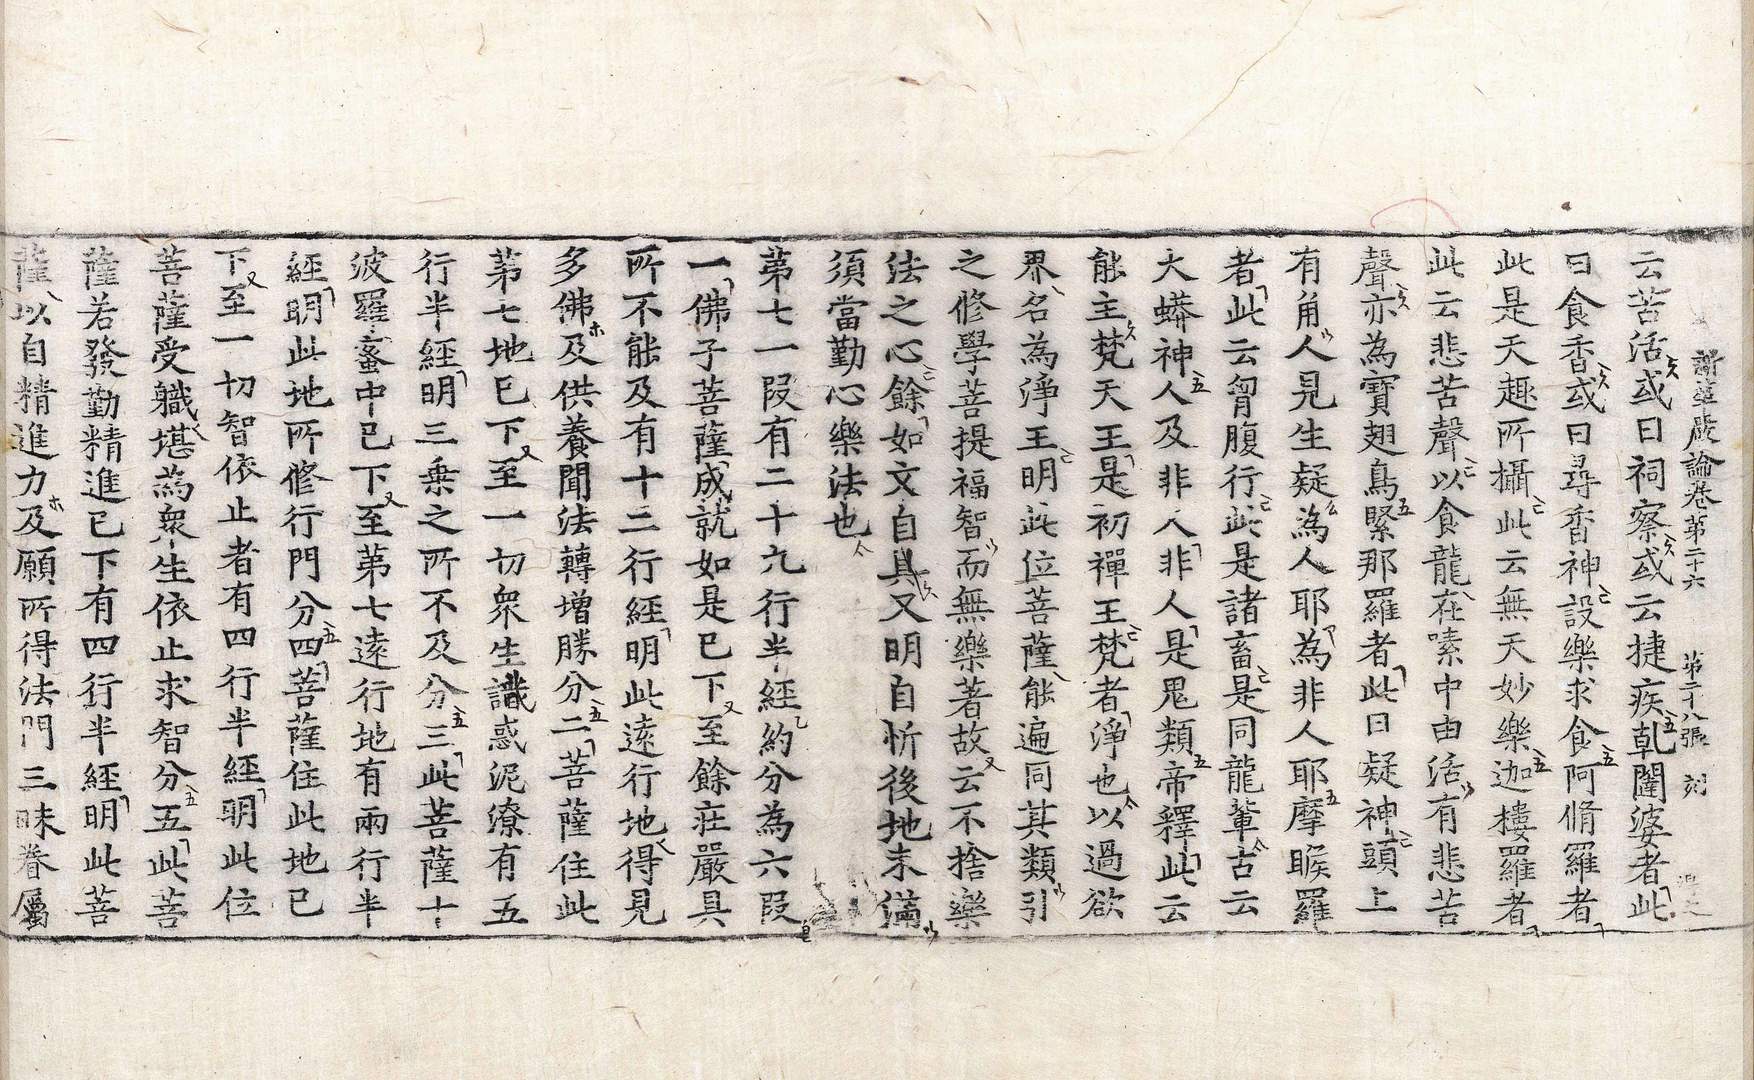 新華嚴論卷第二十六 第二十八張
云苦活或曰祠察或云捷疾乹闥婆者此
曰食香或曰尋香神設樂求食阿脩羅者
此是天趣所攝此云無天妙樂迦樓羅者
此云悲苦聲以食龍在嗉中由活有悲苦
聲亦為寶翅鳥緊那羅者此曰疑神頭上
有角人見生疑為人耶為非人耶摩睺羅
者此云胷腹行此是諸畜是同龍輩古云
大蟒神人及非人非人是鬼類帝釋此云
能主梵天王是初禪王梵者淨也以過欲
界名為淨王明此位菩薩能遍同其類引
之修學菩提福智而無樂著故云不捨樂
法之心餘如文自具又明自忻後地未滿
須當勤心樂法也
第七一段有二十九行半經約分為六段
一佛子菩薩成就如是已下至餘莊嚴具
所不能及有十二行經明此遠行地得見
多佛及供養聞法轉增勝分二菩薩住此
第七地已下至一切衆生識惑泥潦有五
行半經明三乗之所不及分三此菩薩十
波羅蜜中已下至第七遠行地有兩行半
經明此地所修行門分四菩薩住此地已
下至一切智依止者有四行半經明此位
菩薩受職堪為衆生依止求智分五此菩
薩若發勤精進已下有四行半經明此菩
薩以自精進力及願所得法門三昧眷屬